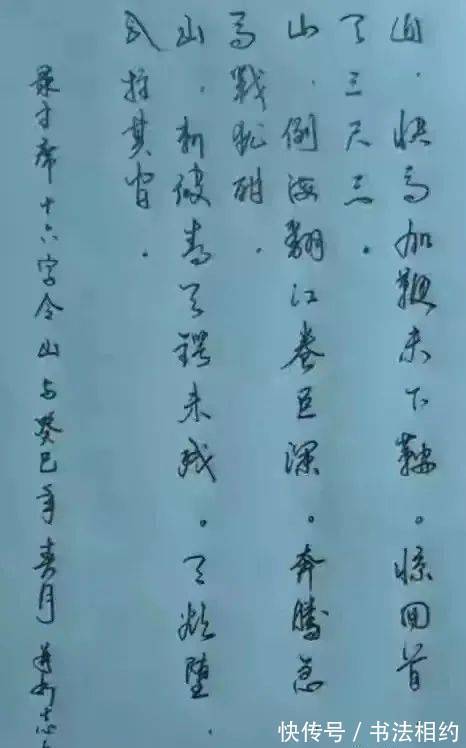 山.快马加鞭未下鞍。惊回首
天三尺三。
山.倒海翻江卷巨澜。奔腾急
马戰犹酣.
山.刺破青天锷未残。天欲堕.
以拄其间.
录主席十六字令山与癸巳年春月
快传号/书法相约